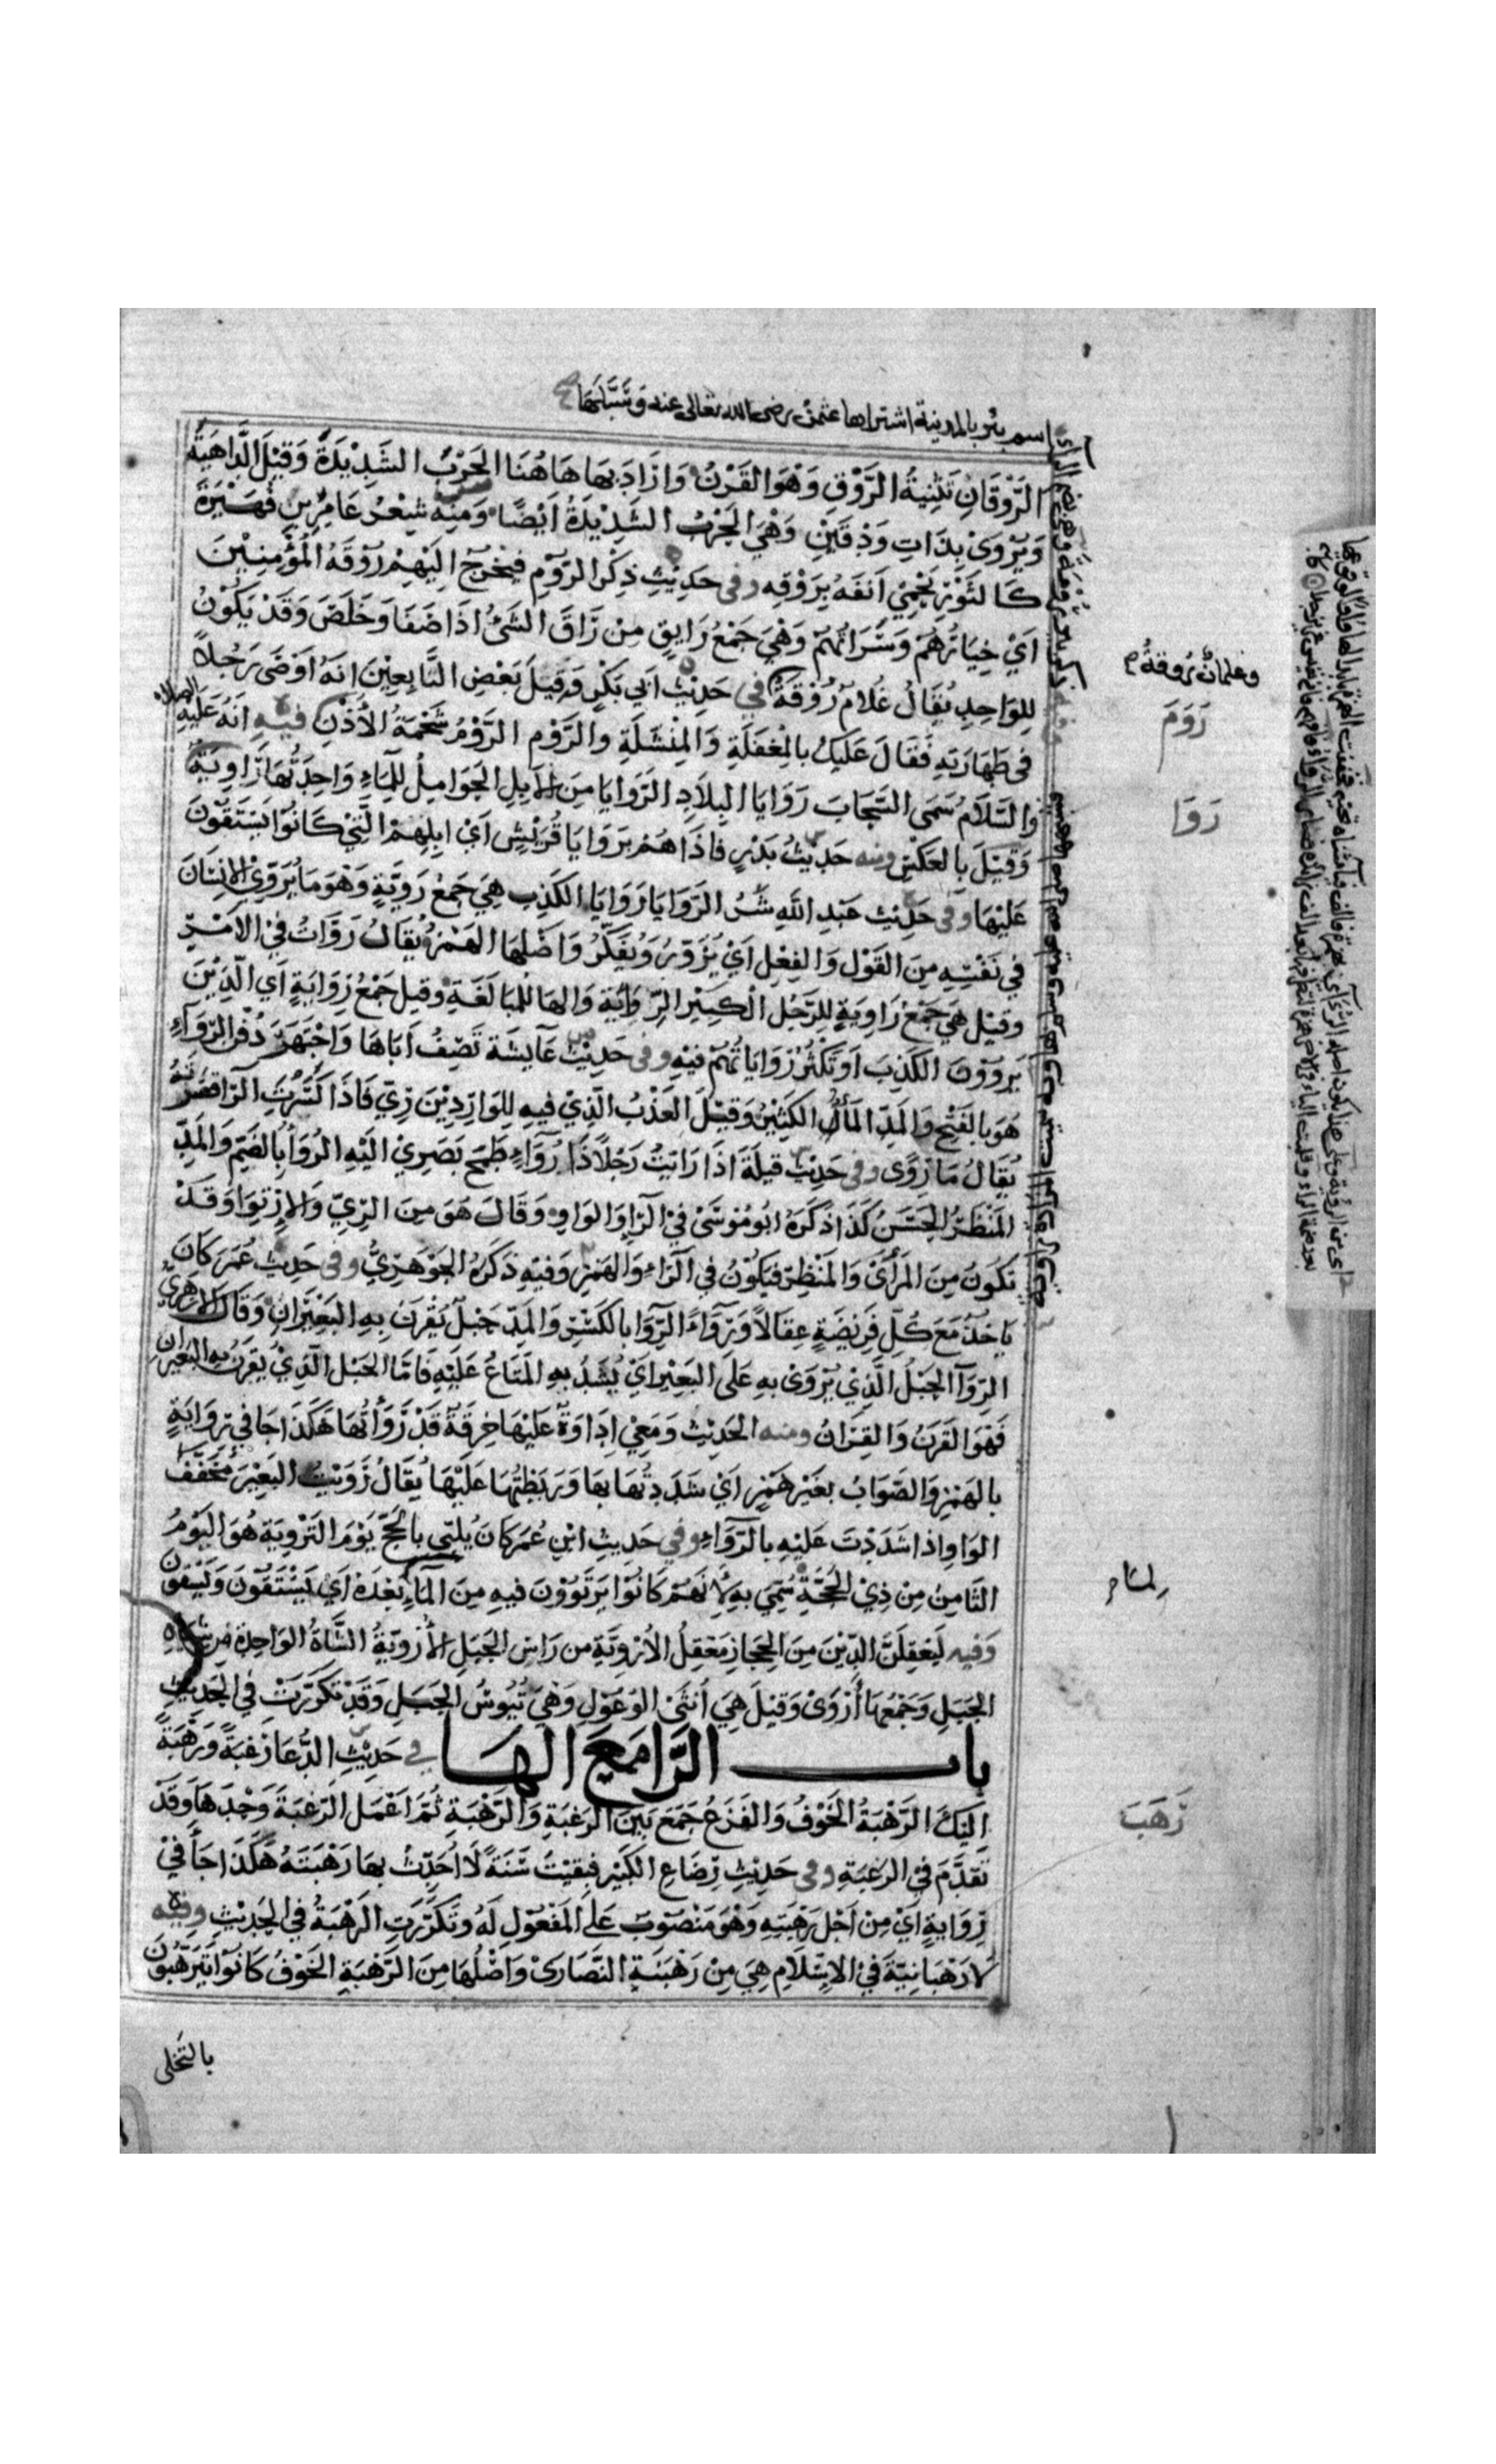 اسم بئر بالمدينة اشتراها عثمن رضى الله تعالى عنه وسبّلها
الرَّوْقَانِ تَثْنِيَةُ الرَّوْقِ وَهُوَ القَرْنُ وَارَادَ بِهَا هَاهُنَا الحَرْبَ الشَّدِيْدَةَ وَقِيْلَ الدَّاهِيَةَ
وَيُرْوَى بِذَاتِ وَدْقَيْنِ وَهْيَ الحَرْبُ الشَّدِيْدَةُ اَيْضًا وَمِنْهُ شِعْرُ عَامِرِ بنِ فُهَيْرَةَ
كَالثَوْرِ يَحْمِيْ اَنفَهُ بِرَوْقِهِ وفى حَدِيْثِ ذِكْرِ الرّوْمِ فيَخْرُجُ اِلَيْهِمْ رُوْقَةُ المُؤْمِنِيْنَ
اَيْ خِيَارُهُمْ وَسَرَاتُهُمْ وَهْيَ جَمْعُ رَايِقٍ مِنْ رَاقَ الشَىْءُ اذَا صَفَا وَخَلَصَ وَقَدْ يَكُوْنُ
لِلوَاحِدِ يُقَالُ غُلَامٌ رُوْقَةٌ في حَدِيْثِ اَبي بَكْرٍ وَقِيلَ بَعْضِ التَّابِعِيْنَ انَهُ اَوْصَى رَجُلاً
في طَهَارَتِهِ فَقَالَ عَلَيْكَ بالمِغفَلَةِ وَالمِنْشَلَةِ والرَّوْمِ الرَّوْمُ شَحْمَةُ الاُذُنِ فيهِ انَهُ عَلَيْهِ الصلاة
وَالسَّلَامُ سَمَى السَّحَابَ رَوَايَا البِلَادِ الرَوَايَا مِنَ الاِبِلِ الحَوَامِلُ لِلْمَاءِ وَاحِدَتُهَا رَاوِيَةٌ
وَقِيْلَ بالعَكْسِ ومنه حَدِيْثُ بَدْرٍ فاذَا هُمْ بِرَوَايَا قُرَيْشٍ اَيْ اِبِلِهِمْ الَّتِيْ كَانُوْا يَسْتَقُوْنَ
عَلَيْهَا وفى حَدِيْثِ عَبْدِ اللهِ شَرُّ الرَوَايَا رَوَايَا الكَذِبِ هِيَ جَمْعُ رَوِيَّةٍ وَهْوَ مَا يُرَوِّيْ الاِنْسَانُ
في نَفْسِهِ مِنَ القَوْلِ وَالفِعْلِ اَيْ يُزَوِّرُ وَيُفَكِّرُ وَاَصْلُهَا الهَمْزُ يُقَالُ رَوَّاتُ فِيْ الاَمْرِ
وقيْل هِيَ جَمْعُ رَاوِيَةٍ لِلرَّجُلِ الْكَثِيْرِ الرِّوَايَةِ وَالهَا لِلْمُبَالَغَةِ وَقِيل جَمْعُ رِوَايَةٍ اَي الَّذِيْنَ
يَرْوُوْنَ الكَذِبَ اَو تَكْثُرُ رَوَايَاتُهُمْ فيْهِ وفى حَدِيْثِ عَايشَة تَصِفُ اَبَاهَا وَاجْتَهَرَ دُفُنَ الرَّوَاءِ
هُوَ بالفَتْحِ وَالمَدِّ المَاءُ الكَثِيْرُ وَقِيْلَ العَذْبُ الَّذِيْ فيهِ لِلوَارِدِيْنَ رِيّ فَاذَا كَسَرْتَ الرَّا قَصَرْتَهُ
يُقَالُ مَا رِوًى وفى حَدِيْثِ قيلَةَ اذَا رَايْتُ رَجُلاً ذَا رُوَاءٍ طَمَحَ بَصَرِيْ الَيْهِ الرُّوَاءُ بالضَّمِ وَالمَدِّ
المَنْظَرُ الحَسَنُ كَذَا ذَكَرَهُ ابُو مُوسَى فِيْ الرَّا وَالوَاوِ وَقَالَ هُوَ مِنَ الرِّيِّ وَالاِرْتِوَا وَقَدْ
تكُونَ مِنَ المَرْأَىْ وَالمَنْظِرِ فيَكُوْنُ في الرَّاءِ وَالهَمْزِ وَفيْهِ ذَكَرَهُ الجَوْهَرِيُّ وفى حَدِيثِ عُمَرَ كَانَ
يَاخذُ مَعَ كُلِّ فَرِيْضَةٍ عِقَالاً وَرِوَاءً الرِّوَا بالكَسْرِ وَالمَدِّ حَبْلٌ يُقْرَنُ بِهِ البَعِيْرَانِ وَقَالَ الازهَرِيُّ
الرّوَآ الحَبْلُ الَّذِيْ يُرْوَى بِهِ عَلَى البَعِيْرِ اَيْ يُشَدُّ بِهِ المَتَاعُ عَلَيْهِ فَامَّا الحَبْل الَّذِيْ يُقرَنُ به البَعِيْرانِ
فَهْوَ القَرَنُ وَالقِرَانُ ومنه الحَدِيْثِ وَمَعِيْ اِدَاوَةٌ عَلَيْهَا خِرقَةٌ قَدْ رَوَّأْتُهَا هَكَذَا جَا في رِوَايَةٍ
بالهَمْزِ وَالصَّوَابُ بغَيْرِ هَمْزٍ اَيْ شَدَدْتُهَا بهَا وَرَبَطْتُهَا عَلَيْهَا يُقَالُ رَوَيْتُ البَعِيْرَ مُخَفَّفَ
الوَاوِ اذا شَدَدْتَ عَلَيْهِ بالرِّوَآءِ وفي حَدِيثِ ابْنِ عُمَرَ كَانَ يُلَبّي بالحَجِّ يَوْمَ التَرْوِيَةِ هُوَ اليَوْمُ
الثَامِنُ مِنْ ذِيْ الحِجَّةِ سُمِّيَ بهِ لأَنهُمْ كَانُوْا يَرْتَوُوْنَ فيهِ مِنَ المَآءِ لمَا بَعْدَهُ اَيْ يَسْتَقُوْنَ وَيَسْقُونَ
وَفيهِ لَيَعْقِلَنَّ الدِّيْنَ مِنَ الحِجَازِ مَعْقِلَ الاُرْوِيَّةِ من رَاسِ الجَبَلِ الأُرْوِيَّةُ الشَّاةُ الوَاحِدَةُ مِن شِيَاهِ
الجَبَلِ وَجَمْعُهَا أَرْوَىْ وَقِيْلَ هِيَ اُنثَى الوُعُوْلِ وَهْيَ تُيُوسُ الجَبَلِ وَقَدْ تَكَرَّرَتْ فِي الحَدِيْثِ
باب الرَّا مَعَ الهَا في حَدِيْثِ الدُّعَا رَغبَةً وَرَهْبَةً
الَيْكَ الرَّهْبَةُ الخَوْفُ وَالفَزَعُ جَمَعَ بَيْنَ الرَغبَةِ وَالرَّهْبَةِ ثُمَّ اَعْمَلَ الرَغبَةَ وَحْدَهَا وَقَدْ
تَقدَّمَ فِيْ الرَغبَةِ وفى حَدِيْثِ رِضَاعِ الكَبِيْرِ فبَقيْتُ سَنَةً لَا اُحَدِّثُ بِهَا رَهْبَتَهُ هَكَذَا جَآ فِيْ
رِوَايَةٍ اَيْ مِنْ اَجْلِ رَهْبَتِهِ وَهْوَ مَنْصُوْبٌ عَلَى المَفْعُوْلِ لَهُ وتَكَرَّرَتِ الرَهْبَةُ في الحَدِيْثِ وفيْه
لَا رَهْبَانِيَّةَ فِيْ الاِسْلَامِ هِيَ مِنْ رَهْبَنَةِ النَّصَارَىْ وَاَصْلُهَا مِنَ الرَّهْبَةِ الخَوْفُ كَانُوْا يَتَرَهَّبُوْنَ
بالتخلى
وغلمانٌ رُوقةٌ
رَوَمَ
رَوَا
رَهَبَ